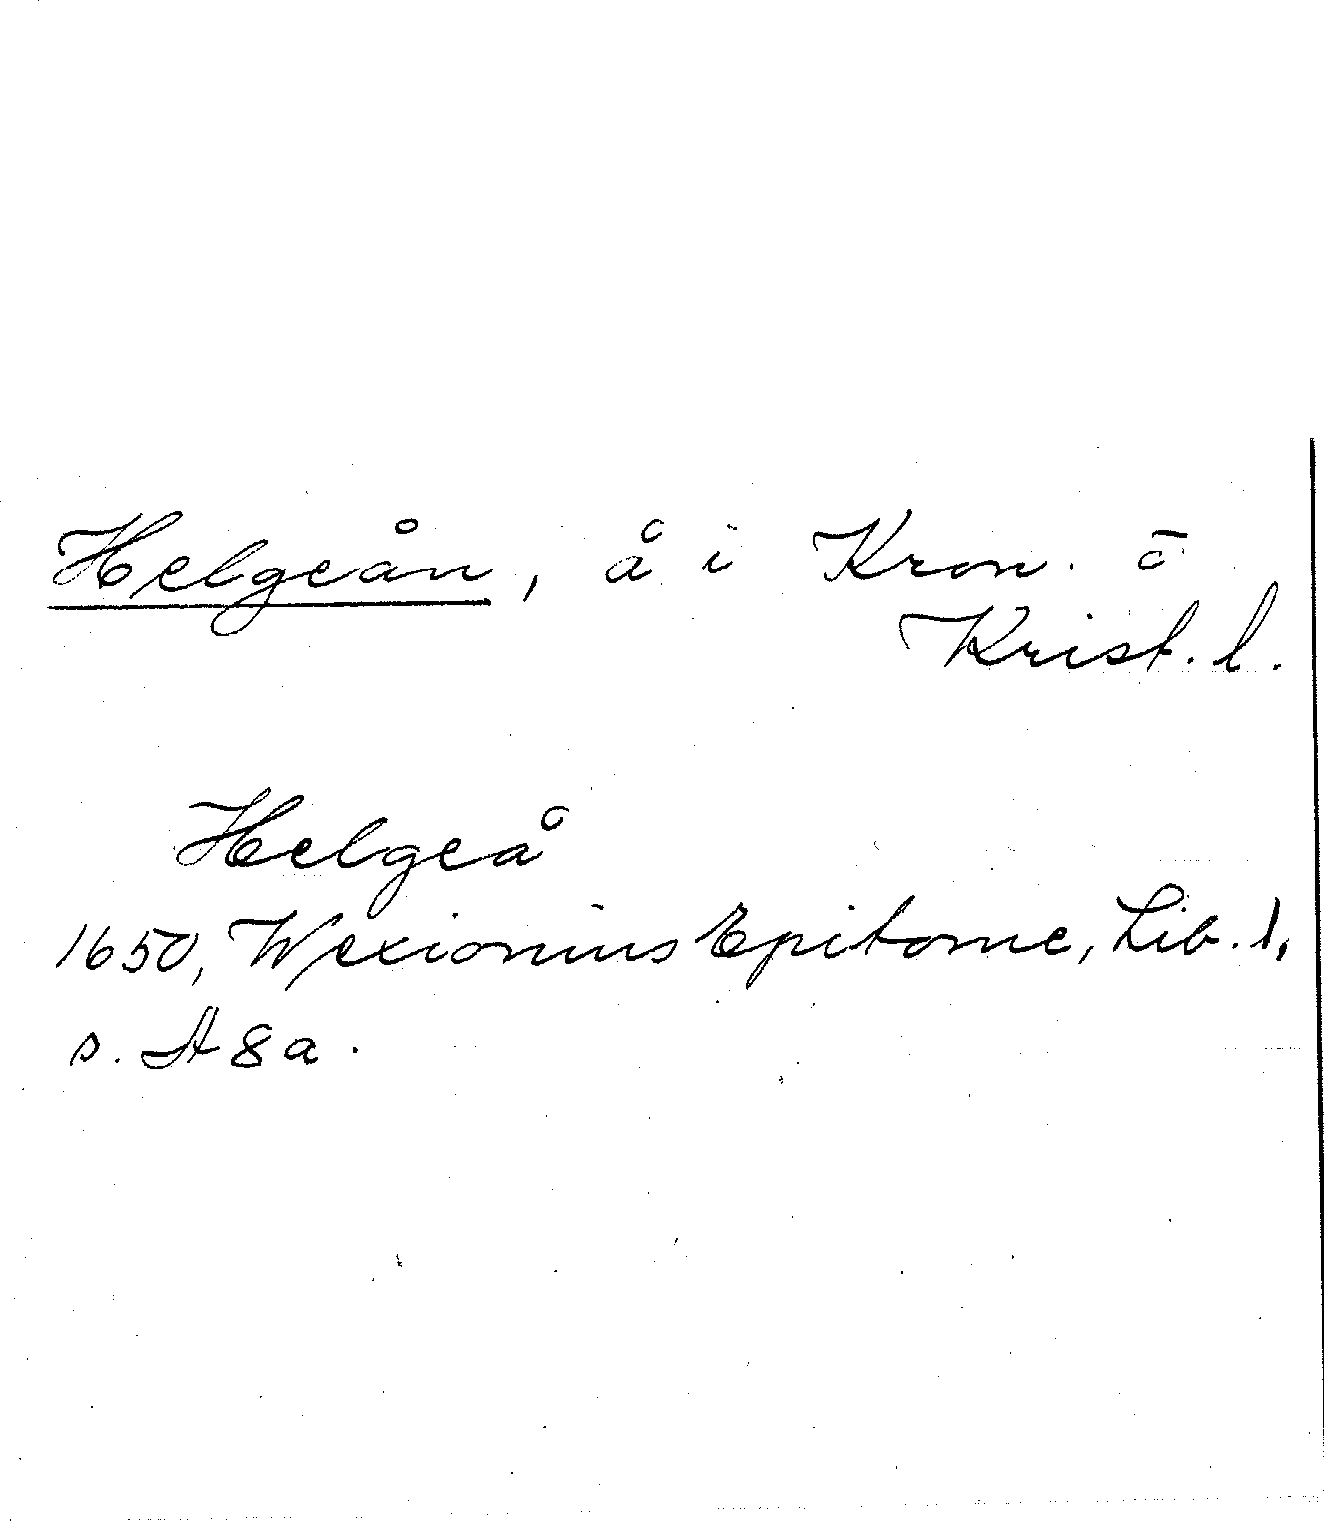 Helgeån, å i Kron. o
Krist. l.
Helgeå
1650, Wexionius Epitome, Lib. 1,
s. A 8 a.